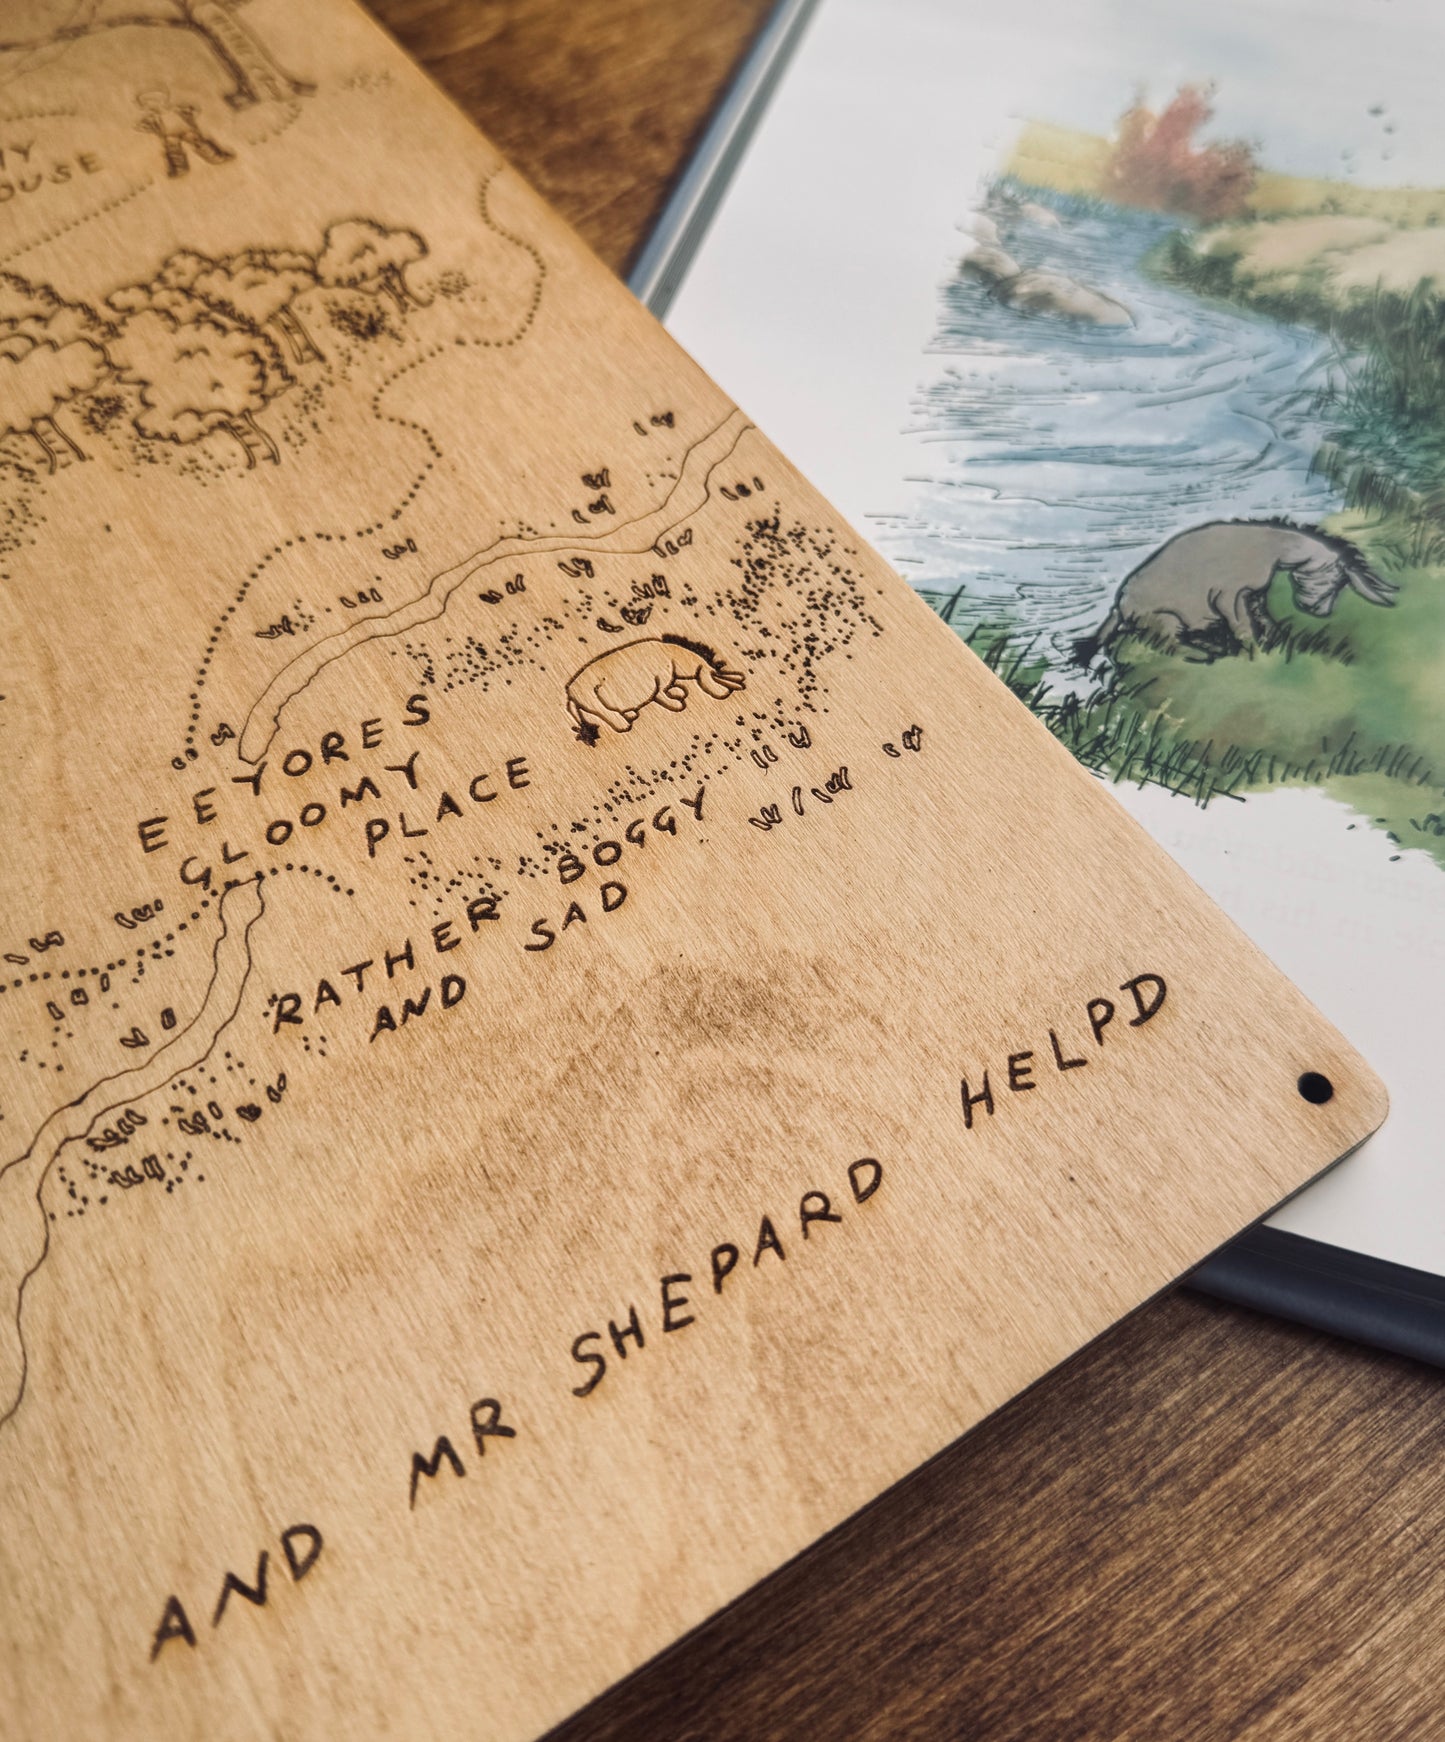 MY
HOUSE
EEYORES
GLOOMY
PLACE
RATHER BOGGY
AND SAD
AND MR SHEPARD HELPD